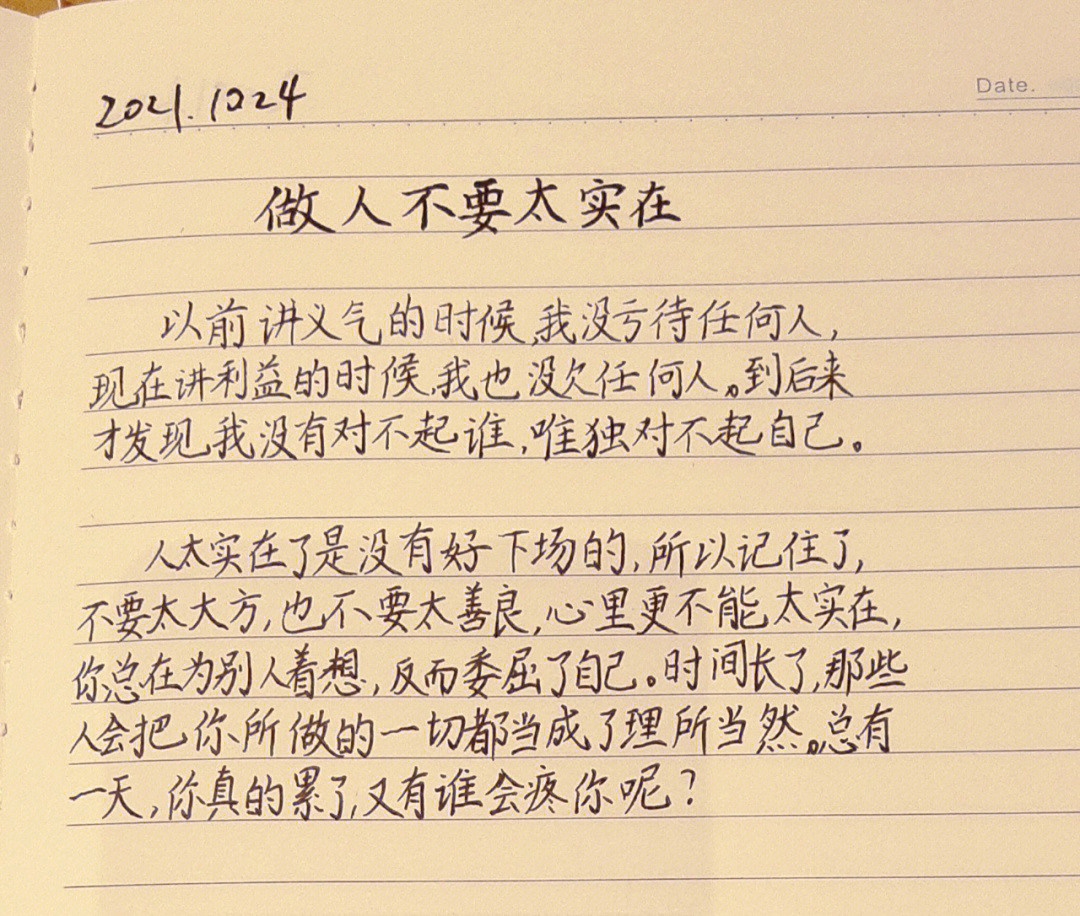 2021.1024
Date.
做人不要太实在
以前讲义气的时候,我没亏待任何人,
现在讲利益的时候,我也没欠任何人。到后来
才发现,我没有对不起谁,唯独对不起自己。
人太实在了是没有好下场的,所以记住了,
不要太大方,也不要太善良,心里更不能太实在,
你总在为别人着想,反而委屈了自己。时间长了,那些
人会把你所做的一切都当成了理所当然。总有
一天,你真的累了,又有谁会疼你呢?